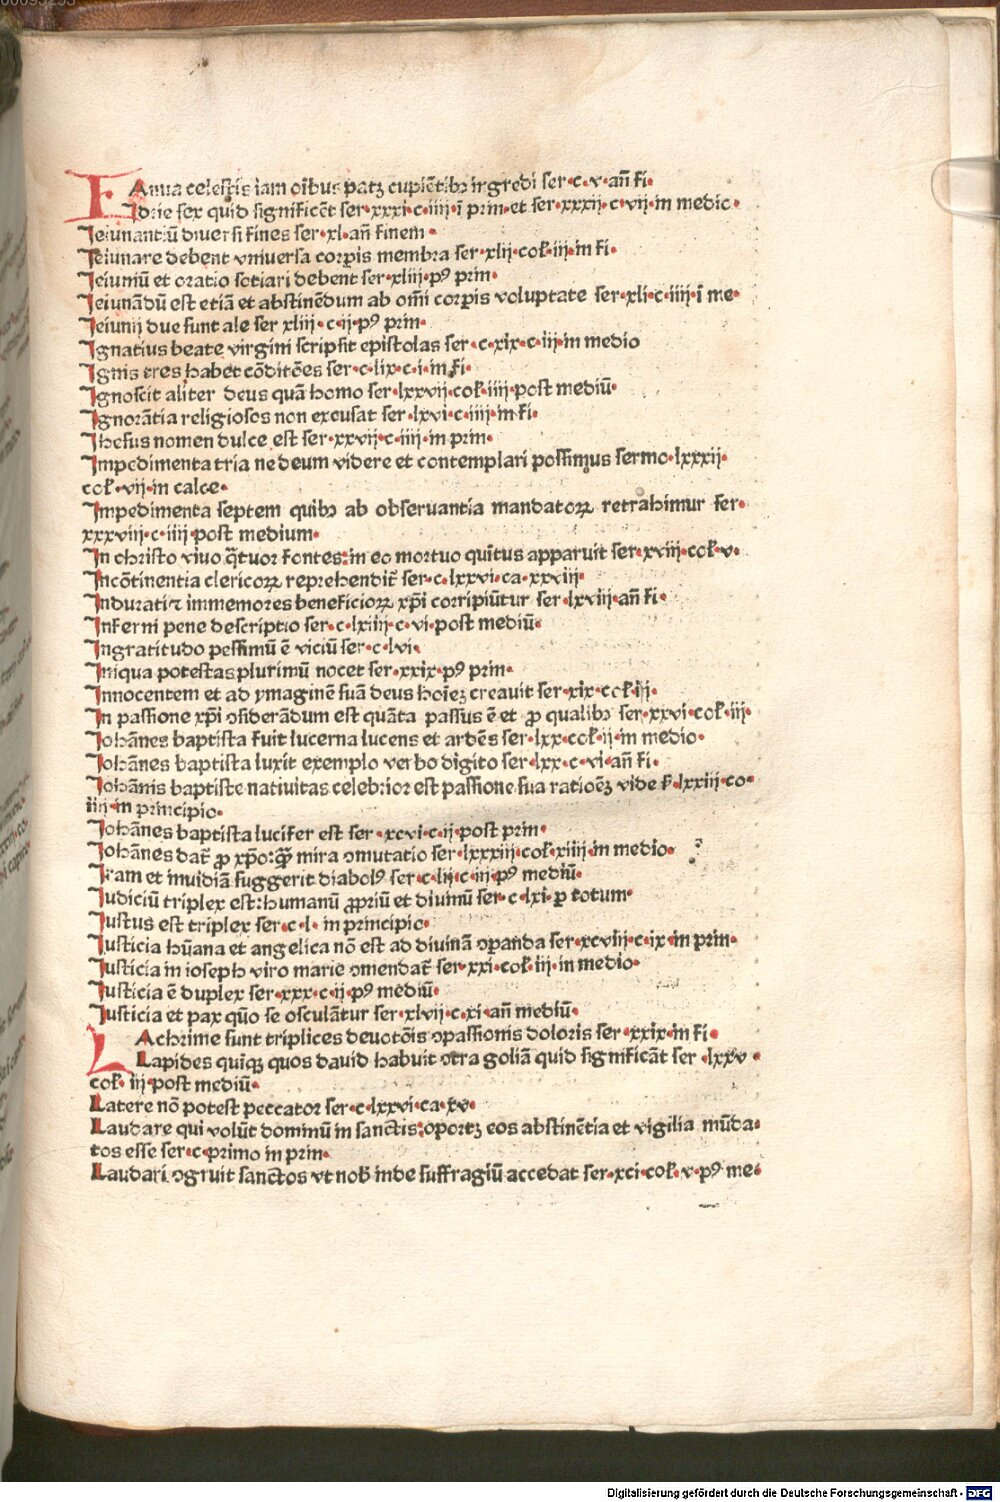 00095255
IAnua celestis iam oibus patꝫ cupiētibꝫ ingredi ser·c·v·añ fi·
Idrie sex quid significēt ser·xxxi·c·iiii·ī prin·et ser·xxxii·c·vii·in medio·
Ieiunantiū diuersi fines ser·xl·añ finem·
Ieiunare debent vniuersa corꝑis membra ser·xlii·col̄·iii·in fi·
Ieiuniū et oratio sotiari debent ser·xliii·pꝰ prin·
Ieiunādū est etiā et abstinēdum ab om̄i corꝑis voluptate ser·xli·c·iiii·ī me·
Ieiunij due sunt ale ser xliii·c·ii·pꝰ prin·
Ignatius beate virgini scripsit epistolas ser·c·xix·c·iii·in medio
Ignis tres habet cōditōes ser·c·lix·c·i·in fi·
Ignoscit aliter deus quā homo ser·lxxvii·col̄·iiii·post mediū·
Ignorātia religiosos non excusat ser·lxvi·c·iiii·in fi·
Ihesus nomen dulce est ser·xxvii·c·iiii·in prin·
Impedimenta tria ne deum videre et contemplari possimus sermo·lxxxii·
col̄·vii·in calce·
Impedimenta septem quibꝫ ab obseruantia mandatoꝝ retrahimur ser·
xxxviii·c·iiii·post medium·
In christo viuo q̄tuor fontes:in eo mortuo quītus apparuit ser·xviii·col̄·v·
Incōtinentia clericoꝝ reprehendit̄ ser·c·lxxvi·ca·xxviii·
Indurati ⁊ immemores beneficioꝝ xp̄i corripiūtur ser·lxviii·añ fi·
Inferni pene descriptio ser·c·lxiiii·c·vi·post mediū·
Ingratitudo pessimū ē viciū ser·c·lvi·
Iniqua potestas plurimū nocet ser·xxix·pꝰ prin·
Innocentem et ad ymaginē suā deus hoīeꝫ creauit ser·xix·col̄·iii·
In passione xp̄i ↄsiderādum est quāta passus ē et ꝓ qualibꝫ ser·xxvi·col̄·iii·
Iohānes baptista fuit lucerna lucens et ardēs ser·lxx·col̄·ii·in medio·
Iohānes baptista luxit exemplo verbo digito ser·lxx·c·vi·añ fi·
Iohānis baptiste natiuitas celebrior est passione sua ratioēꝫ vide s̄·lxxiii·co·
iiii·in principio·
Iohānes baptista lucifer est ser·xcvi·c·ii·post prin·
Iohānes dat̄ ꝓ xp̄o:q̄ꝫ mira ↄmutatio ser·lxxxiii·col̄·xiiii·in medio·
Iram et inuidiā suggerit diabolꝰ ser·c·lii·c·iii·pꝰ mediū·
Iudiciū triplex est:humanū ꝓpriū et diuinū ser·c·lxi·ꝑ totum·
Iustus est triplex ser·c·l·in principio·
Iusticia hūana et angelica nō est ad diuinā ↄꝑanda ser·xcviii·c·ix·in prin·
Iusticia in ioseph viro marie ↄmendat̄ ser·xxi·col̄·iii·in medio·
Iusticia ē duplex ser·xxx·c·ii·pꝰ mediū·
Iusticia et pax quō se osculātur ser·xlvii·c·xi·añ mediū·
LAchrime sunt triplices deuotōis ↄpassionis doloris ser·xxix·in fi·
Lapides quiqꝫ quos dauid habuit ↄtra goliā quid significāt ser·lxxv·
col̄·iii·post mediū·
Latere nō potest peccator ser·c·lxxvi·ca·xv·
Laudare qui volūt dominū in sanctis:oportꝫ eos abstinētia et vigilia mūda-
tos esse ser·c·primo in prin·
Laudari ↄgruit sanctos vt nob̄ inde suffragiū accedat ser·xci·col̄·v·pꝰ me·
Digitalisierung gefördert durch die Deutsche Forschungsgemeinschaft - DFG